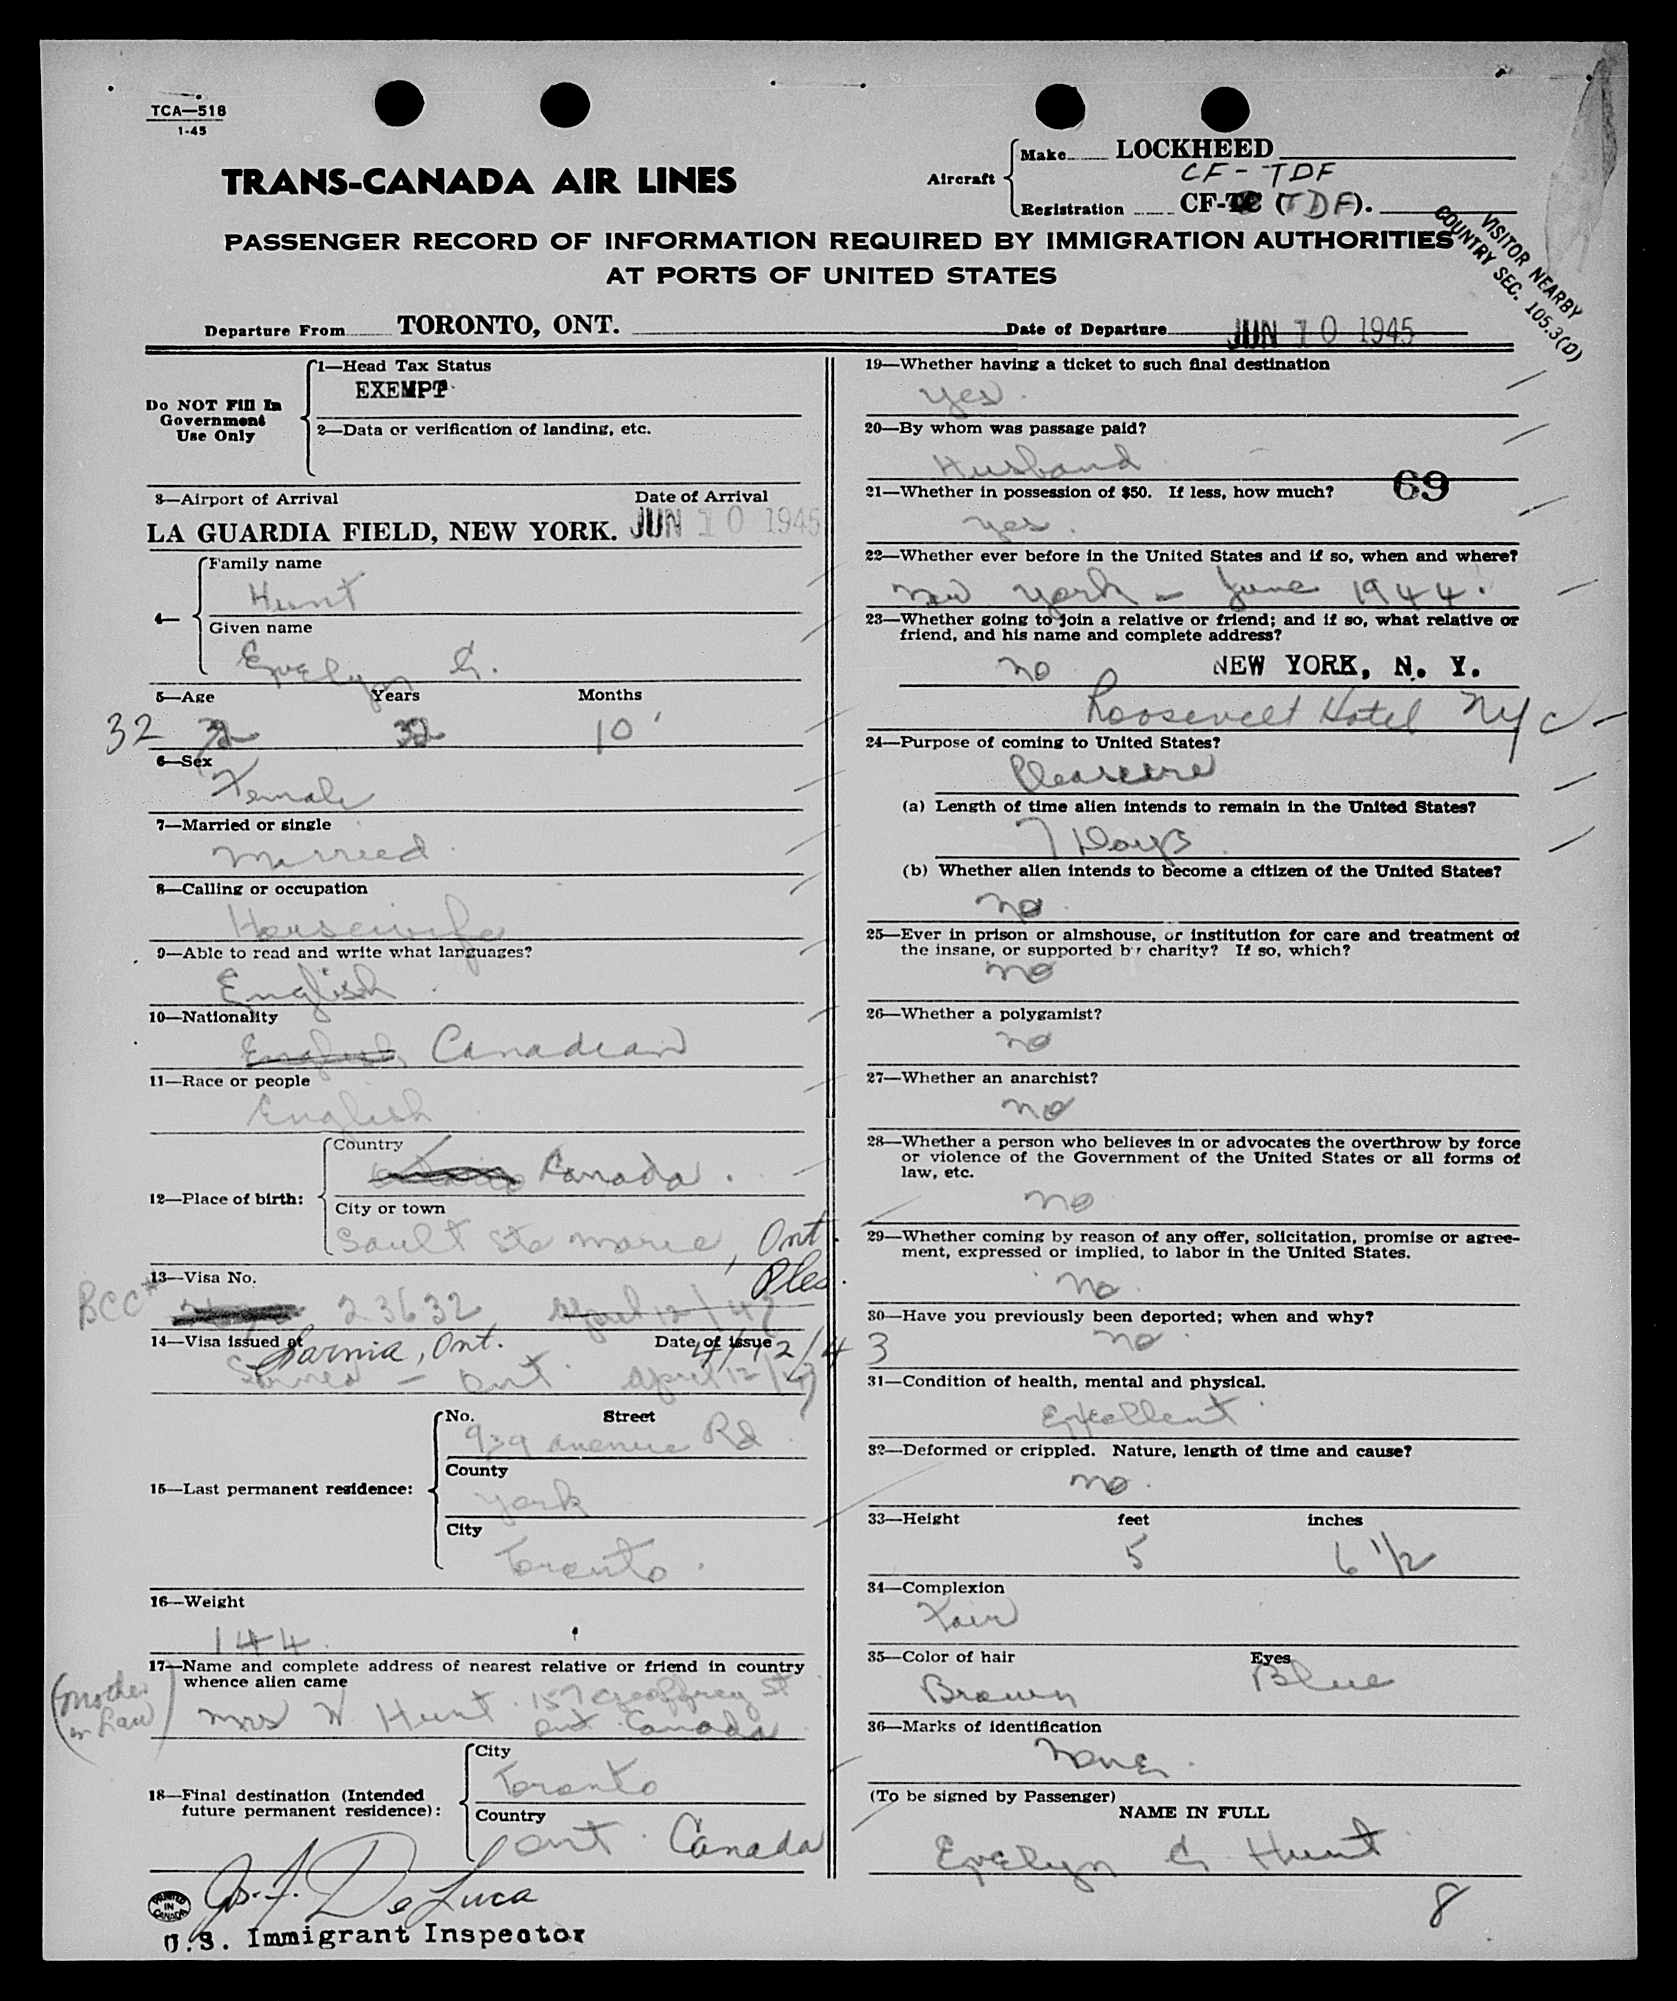 TCA—518
1-45
TRANS-CANADA AIR LINES
Aircraft
Make LOCKHEED
CF-TDF
Registration CF-TC (TDF).
VISITOR NEARBY
COUNTRY SEC. 105.3(D)
PASSENGER RECORD OF INFORMATION REQUIRED BY IMMIGRATION AUTHORITIES
AT PORTS OF UNITED STATES
Departure From TORONTO, ONT. Date of Departure JUN 10 1945
Do NOT Fill In
Government
Use Only
1—Head Tax Status
EXEMPT
2—Data or verification of landing, etc.
3—Airport of Arrival Date of Arrival
LA GUARDIA FIELD, NEW YORK. JUN 10 1945
4—
Family name
Hunt
Given name
Evelyn G.
5—Age Years Months
32 32 32 10
6—Sex
Female
7—Married or single
Married
8—Calling or occupation
Housewife
9—Able to read and write what languages?
English
10—Nationality
English Canadian
11—Race or people
English
12—Place of birth:
Country
Canada.
City or town
Sault Ste Marie, Ont
13—Visa No.
BCC# 23632 April 12/43
14—Visa issued at Date of issue
Sarnia, Ont. 4/12/43
Ont. April 12/43
15—Last permanent residence:
No. Street
939 Avenue Rd
County
York
City
Toronto.
16—Weight
144.
17—Name and complete address of nearest relative or friend in country
whence alien came
(mother
in Law)
Mrs W Hunt. 157 Geoffrey St
Ont Canada
18—Final destination (Intended
future permanent residence):
City
Toronto
Country
Ont. Canada
Jos. F. DeLuca
PRINTED
IN
CANADA
U.S. Immigrant Inspector
19—Whether having a ticket to such final destination
Yes.
20—By whom was passage paid?
Husband
21—Whether in possession of $50. If less, how much? 69
yes.
22—Whether ever before in the United States and if so, when and where?
New York - June 1944.
23—Whether going to join a relative or friend; and if so, what relative or
friend, and his name and complete address?
no NEW YORK, N. Y.
Roosevelt Hotel NYC
24—Purpose of coming to United States?
Pleasure
(a) Length of time alien intends to remain in the United States?
7 Days
(b) Whether alien intends to become a citizen of the United States?
no
25—Ever in prison or almshouse, or institution for care and treatment of
the insane, or supported by charity? If so, which?
no
26—Whether a polygamist?
no
27—Whether an anarchist?
no
28—Whether a person who believes in or advocates the overthrow by force
or violence of the Government of the United States or all forms of
law, etc.
no
29—Whether coming by reason of any offer, solicitation, promise or agree-
ment, expressed or implied, to labor in the United States.
no.
30—Have you previously been deported; when and why?
no
31—Condition of health, mental and physical.
Excellent
32—Deformed or crippled. Nature, length of time and cause?
no.
33—Height feet inches
5 6 1/2
34—Complexion
Fair
35—Color of hair Eyes
Brown Blue
36—Marks of identification
None.
(To be signed by Passenger)
NAME IN FULL
Evelyn G Hunt
8